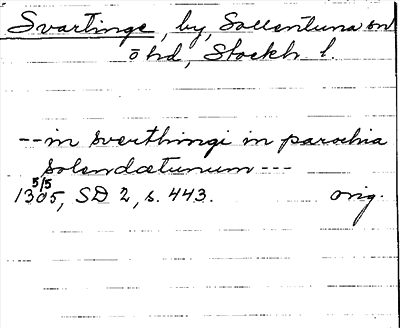 Svartinge, by, Sollentuna sn
ö hd, Stockh l.
--in Sverthingi in parochia
Solendætunum ---
1305 5/5, SD 2, s. 443. orig.